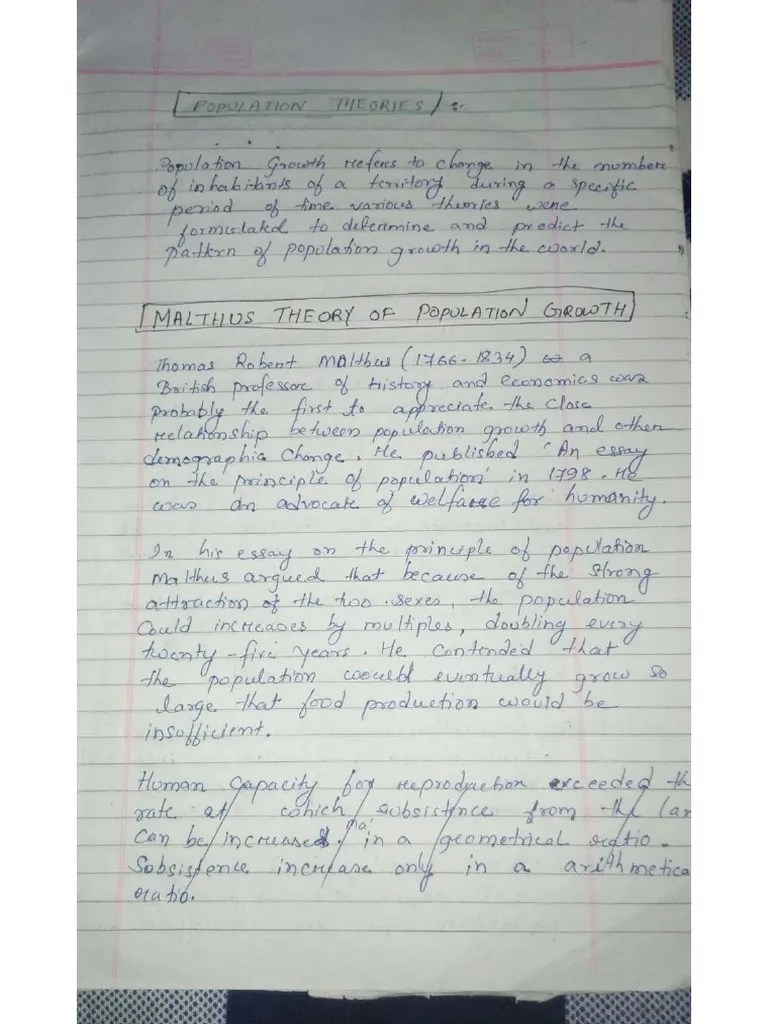 POPULATION THEORIES :-
Population Growth refers to change in the number
of inhabitants of a territory during a specific
period of time various theories were
formulated to determine and predict the
pattern of population growth in the world.
MALTHUS THEORY OF POPULATION GROWTH
Thomas Robert Malthus (1766-1834) a
British professor of history and economics was
probably the first to appreciate the close
relationship between population growth and other
demographic change. He published 'An essay
on the principle of population' in 1798. He
was an advocate of welfare for humanity.
In his essay on the principle of population
Malthus argued that because of the strong
attraction of the two sexes, the population
could increases by multiples, doubling every
twenty-five years. He contended that
the population would eventually grow so
large that food production would be
insufficient.
Human capacity for reproduction exceeded th
rate at which subsistence from the lan
can be increased. in a geometrical ratio.
Subsistence increase only in a arithmetica
ratio.